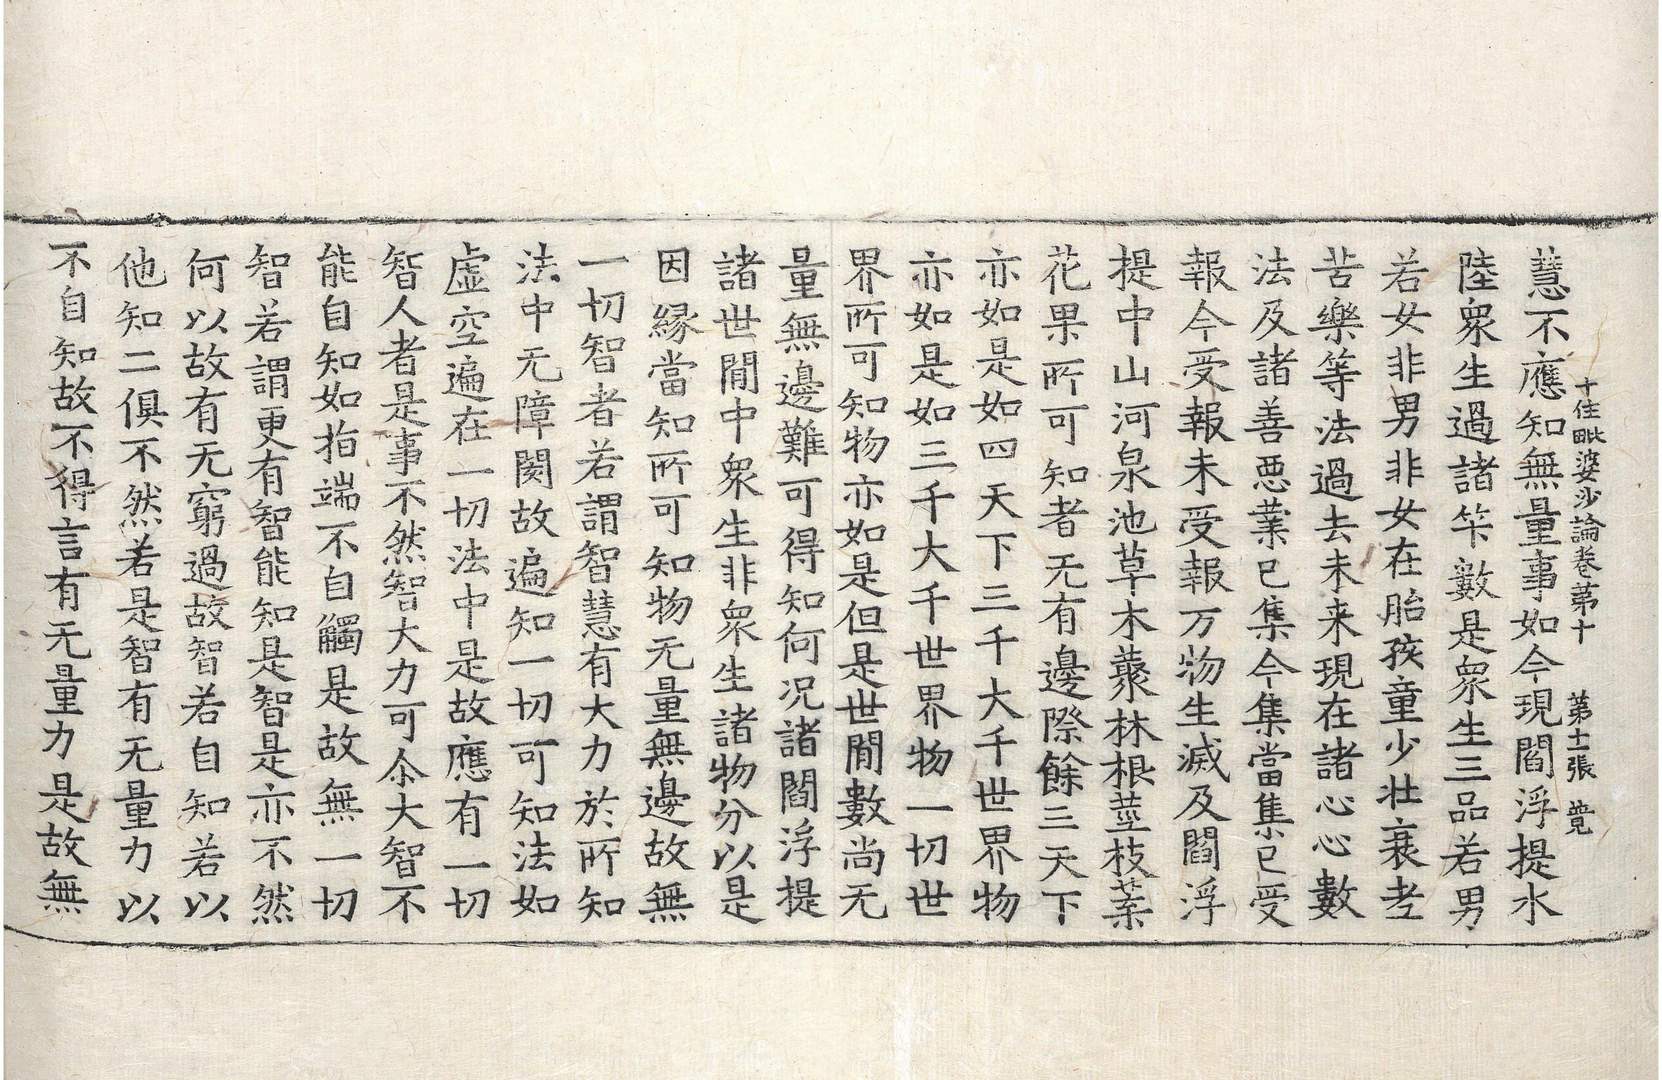 十住毗婆沙論卷第十 第十二張 競
慧不應知無量事如今現閻浮提水
陸衆生過諸筭數是衆生三品若男
若女非男非女在胎孩童少壯衰老
苦樂等法過去未来現在諸心心數
法及諸善惡業已集今集當集已受
報今受報未受報万物生滅及閻浮
提中山河泉池草木藂林根莖枝葉
花果所可知者无有邊際餘三天下
亦如是如四天下三千大千世界物
亦如是如三千大千世界物一切世
界所可知物亦如是但是世間數尚无
量無邊難可得知何況諸閻浮提
諸世間中衆生非衆生諸物分以是
因縁當知所可知物无量無邊故無
一切智者若謂智慧有大力於所知
法中无障閡故遍知一切可知法如
虛空遍在一切法中是故應有一切
智人者是事不然智大力可尒大智不
能自知如指端不自觸是故無一切
智若謂更有智能知是智是亦不然
何以故有无窮過故智若自知若以
他知二俱不然若是智有无量力以
不自知故不得言有无量力是故無